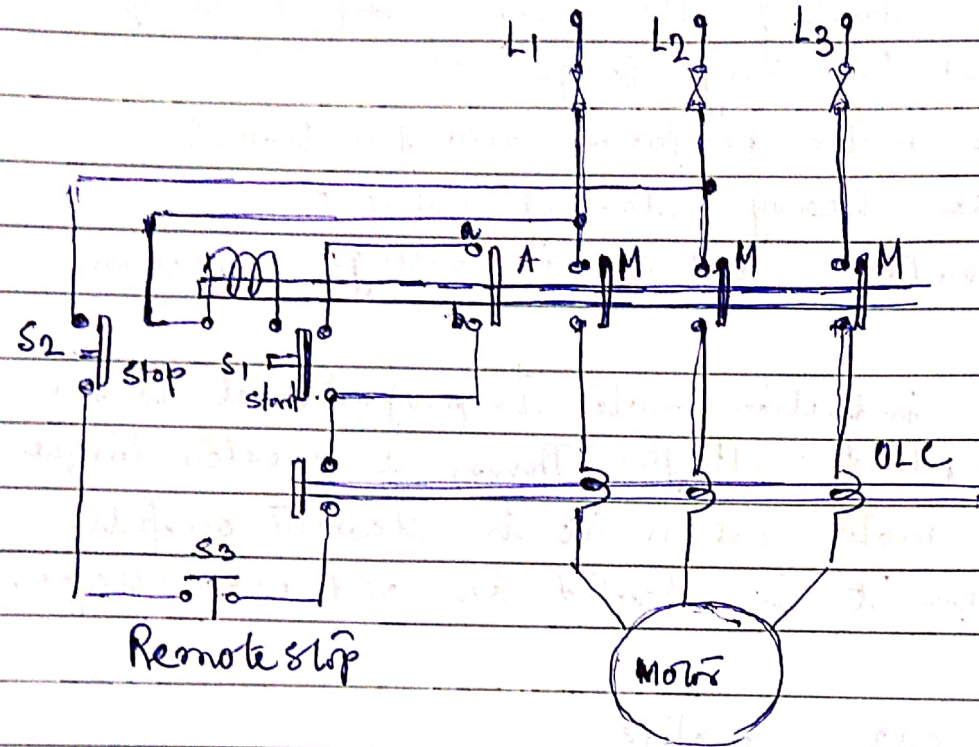 L1 L2 L3
a A M M M
b
S2 Stop S1 Start
OLC
S3
Remote stop
Motor